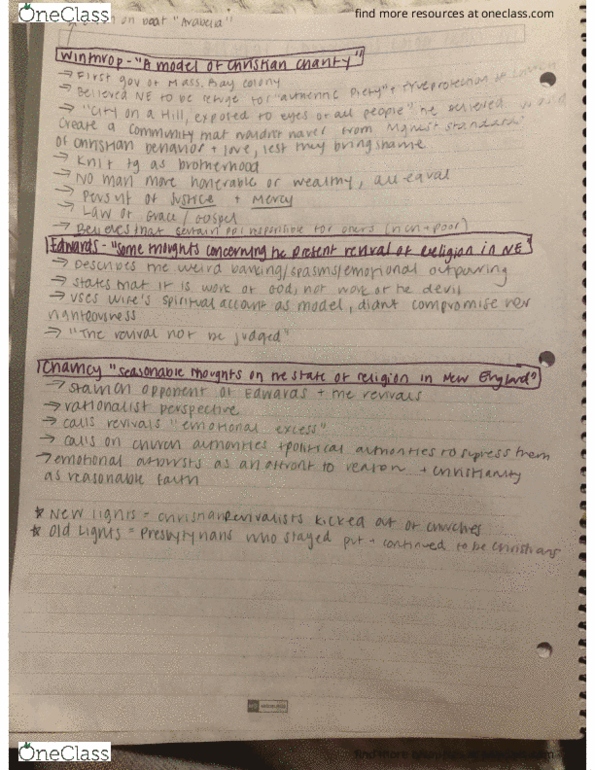 OneClass
find more resources at oneclass.com
on boat "Arabella"
Winthrop - "A model of Christian Charity"
→ First gov of Mass. Bay colony
→ Believed NE to be refuge for "authentic piety" + true protection
→ "City on a Hill, exposed to eyes of all people" he believed would
create a community that wouldn't waver from highest standards
of christian behavior + love, lest they bring shame
→ Knit tg as brotherhood
→ No man more honorable or wealthy, all equal
→ Persuit of Justice + Mercy
→ Law of Grace / Gospel
→ Believes that certain ppl responsible for others (rich + poor)
Edwards - "some thoughts concerning the present revival of religion in NE"
→ Describes the weird barking/spasms/emotional outpouring
→ states that it is work of God, not work of the devil
→ uses wife's spiritual account as model, didn't compromise her
righteousness
→ "The revival not be judged"
Chauncy "seasonable thoughts on the state of religion in New England"
→ staunch opponent of Edwards + the revivals
→ rationalist perspective
→ calls revivals "emotional excess"
→ calls on church authorities + political authorities to supress them
→ emotional outbursts as an affront to reason + christianity
as reasonable faith
* New Lights = christian revivalists kicked out of churches
* Old Lights = Presbytyrians who stayed put + continued to be christians
OneClass
find more resources at oneclass.com